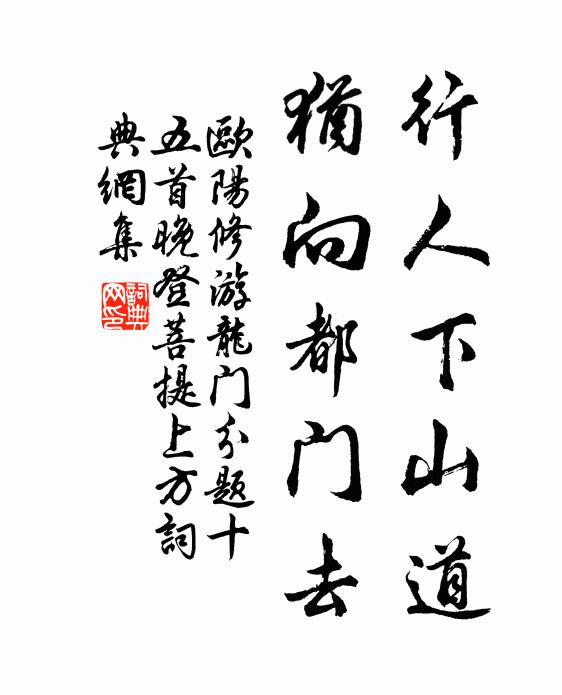 行人下山道
猶向都门去
歐陽修游龍门分題十
五首晚登菩提上方詞
典網集
詞典
网印